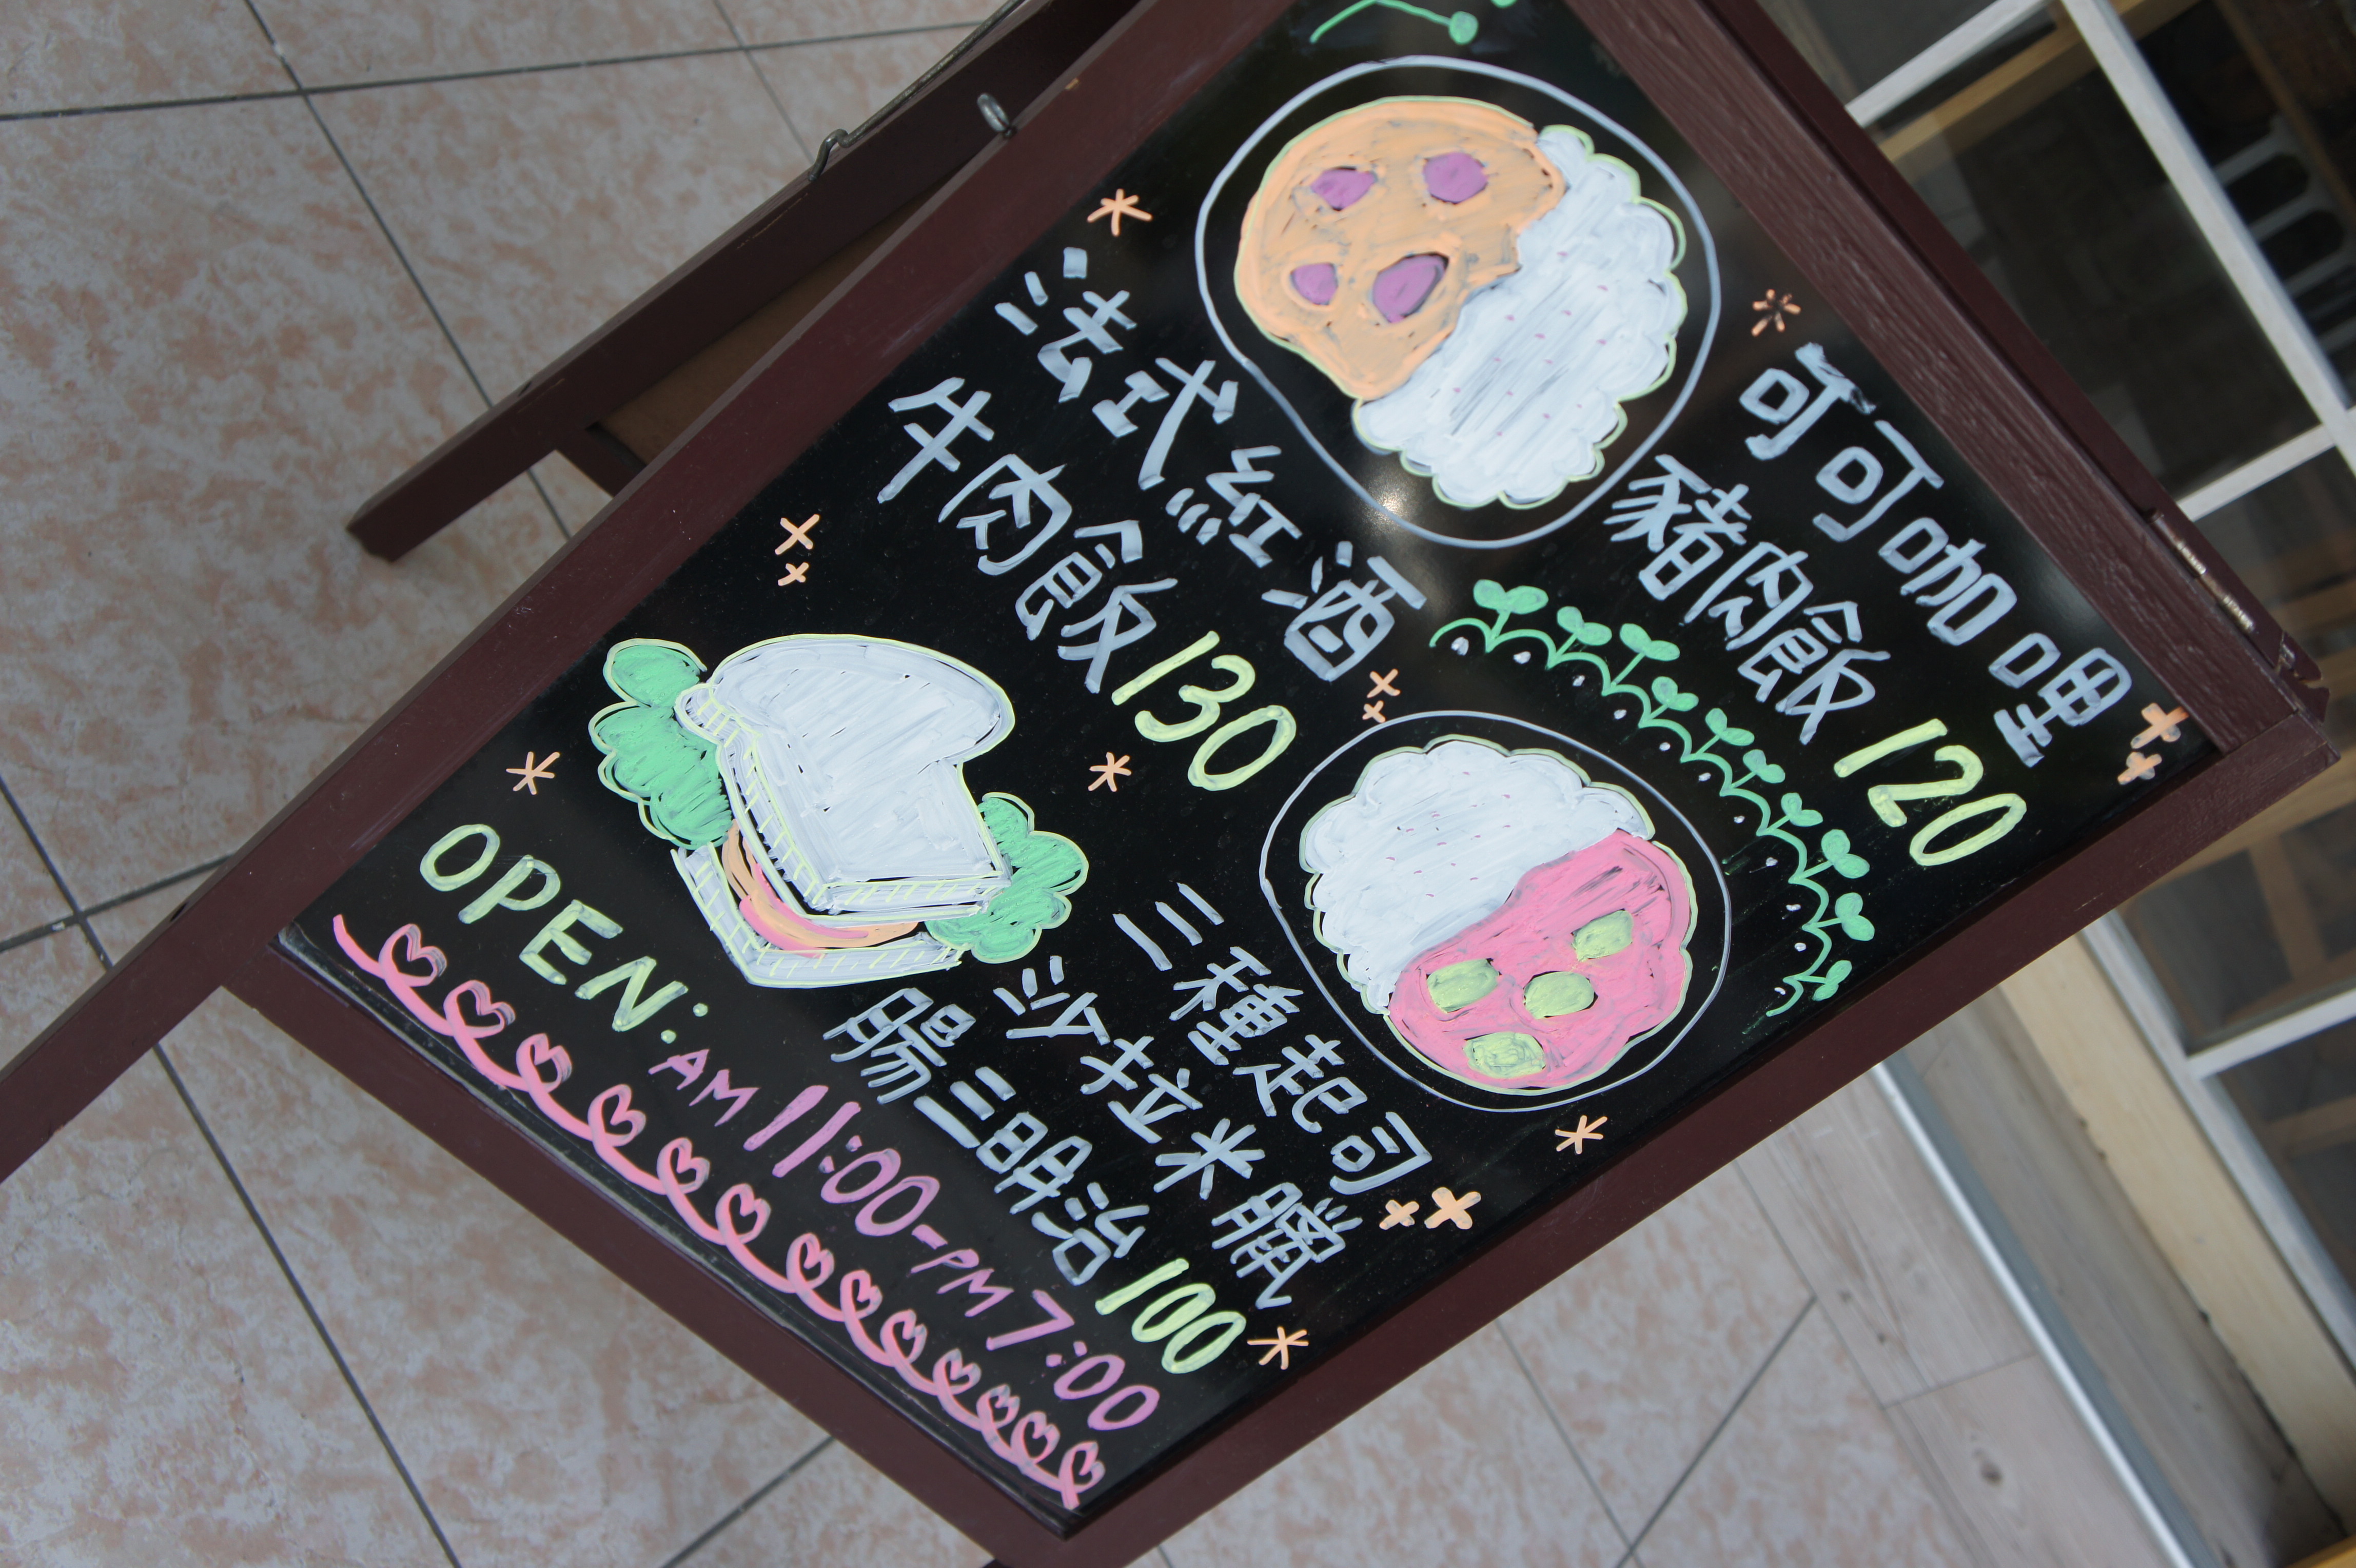 可可咖哩
豬肉飯 120
法式紅酒
牛肉飯 130
三種起司
沙拉米臘
腸三明治 100
OPEN: AM 11:00-PM 7:00